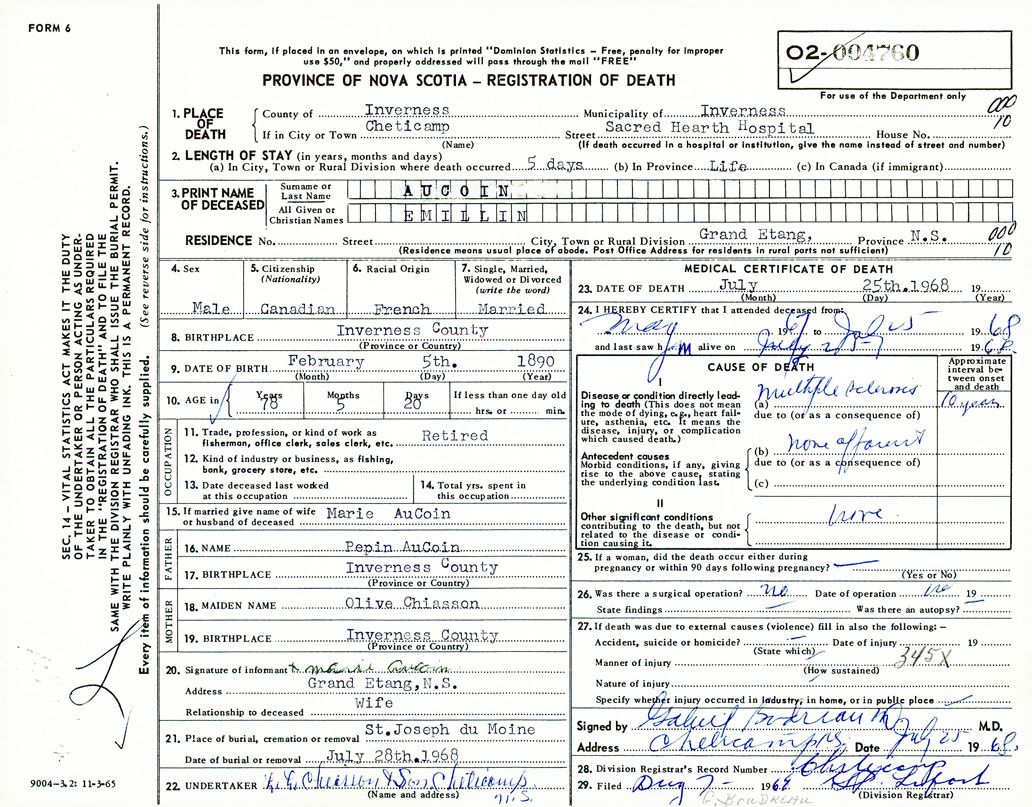 FORM 6
This form, if placed in an envelope, on which is printed "Dominion Statistics – Free, penalty for improper
use $50," and properly addressed will pass through the mail "FREE"
PROVINCE OF NOVA SCOTIA – REGISTRATION OF DEATH
02-004760
For use of the Department only
SEC. 14 – VITAL STATISTICS ACT MAKES IT THE DUTY
OF THE UNDERTAKER OR PERSON ACTING AS UNDER-
TAKER TO OBTAIN ALL THE PARTICULARS REQUIRED
IN THE "REGISTRATION OF DEATH" AND TO FILE THE
SAME WITH THE DIVISION REGISTRAR WHO SHALL ISSUE THE BURIAL PERMIT.
WRITE PLAINLY WITH UNFADING INK. THIS IS A PERMANENT RECORD.
Every item of information should be carefully supplied. (See reverse side for instructions.)
1. PLACE OF DEATH
County of Inverness Municipality of Inverness 000
If in City or Town Cheticamp Street Sacred Hearth Hospital House No. 10
(Name) (If death occurred in a hospital or institution, give the name instead of street and number)
2. LENGTH OF STAY (in years, months and days)
(a) In City, Town or Rural Division where death occurred 5 days (b) In Province Life (c) In Canada (if immigrant)
3. PRINT NAME OF DECEASED
Surname or Last Name AUCOIN
All Given or Christian Names EMILLIN
RESIDENCE No. Street City, Town or Rural Division Grand Etang, Province N.S. 000
(Residence means usual place of abode. Post Office Address for residents in rural parts not sufficient) 10
4. Sex
Male
5. Citizenship (Nationality)
Canadian
6. Racial Origin
French
7. Single, Married, Widowed or Divorced (write the word)
Married
8. BIRTHPLACE Inverness County
(Province or Country)
9. DATE OF BIRTH February 5th. 1890
(Month) (Day) (Year)
10. AGE in Years 78 Months 5 Days 20 If less than one day old
hrs. or min.
OCCUPATION
11. Trade, profession, or kind of work as
fisherman, office clerk, sales clerk, etc. Retired
12. Kind of industry or business, as fishing,
bank, grocery store, etc.
13. Date deceased last worked
at this occupation
14. Total yrs. spent in
this occupation
15. If married give name of wife
or husband of deceased Marie AuCoin
FATHER
16. NAME Pepin AuCoin
17. BIRTHPLACE Inverness County
(Province or Country)
MOTHER
18. MAIDEN NAME Olive Chiasson
19. BIRTHPLACE Inverness County
(Province or Country)
20. Signature of informant Marie Aucoin
Address Grand Etang, N.S.
Relationship to deceased Wife
21. Place of burial, cremation or removal St.Joseph du Moine
Date of burial or removal July 28th.1968
22. UNDERTAKER Chiasson & Son Cheticamp
(Name and address) N.S.
9004–3.2: 11-3-65
MEDICAL CERTIFICATE OF DEATH
23. DATE OF DEATH July 25th.1968 19
(Month) (Day) (Year)
24. I HEREBY CERTIFY that I attended deceased from:
May 1967 to July 25 1968
and last saw him alive on July 25 1968.
CAUSE OF DEATH
Approximate interval between onset and death
I
Disease or condition directly lead-
ing to death (This does not mean
the mode of dying, e.g., heart fail-
ure, asthenia, etc. It means the
disease, injury, or complication
which caused death.)
(a) Multiple Sclerosis 10 years
due to (or as a consequence of)
Antecedent causes
Morbid conditions, if any, giving
rise to the above cause, stating
the underlying condition last.
(b) none apparent
due to (or as a consequence of)
(c)
II
Other significant conditions
contributing to the death, but not
related to the disease or condi-
tion causing it.
none
25. If a woman, did the death occur either during
pregnancy or within 90 days following pregnancy?
(Yes or No)
26. Was there a surgical operation? no Date of operation 19
State findings Was there an autopsy?
27. If death was due to external causes (violence) fill in also the following: –
Accident, suicide or homicide? Date of injury 19
(State which) 345X
Manner of injury
(How sustained)
Nature of injury
Specify whether injury occurred in Industry, in home, or in public place
Signed by Gabriel Boudreau M.D.
Address Cheticamp Date July 25 1968.
28. Division Registrar's Record Number
29. Filed 1968
(Division Registrar)
G. BOUDREAU